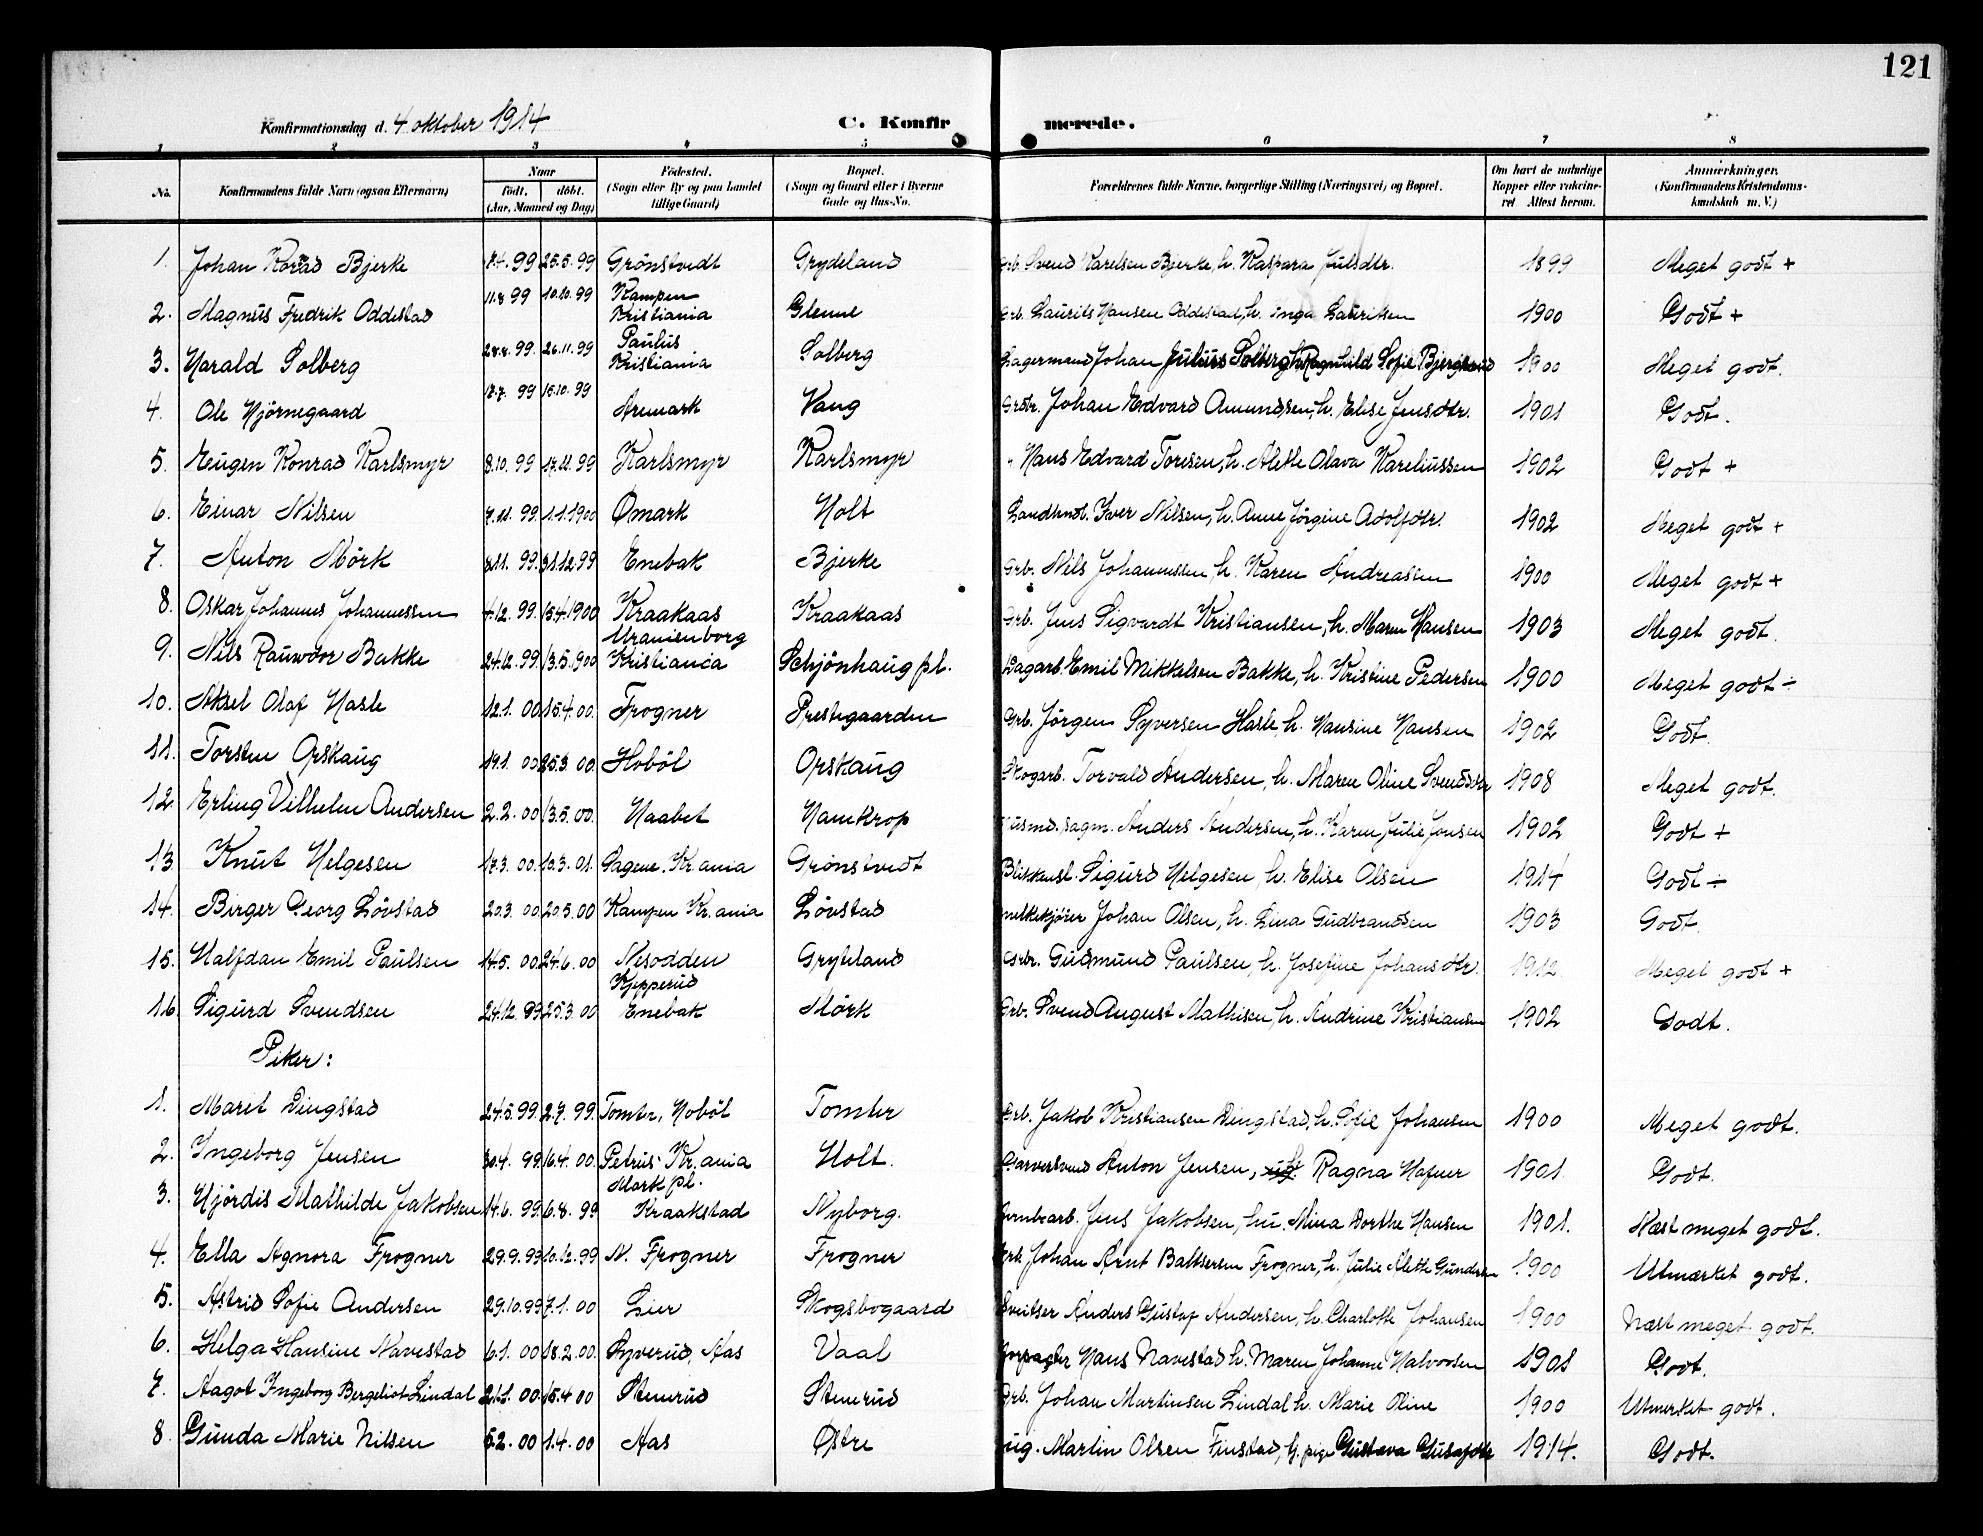 121
Konfirmationsdag d. 4 oktober 1914 C. Konfir merede.
1 2 3 4 5 6 7 8
No. Konfirmandens fulde Navn (ogsaa Efternavn) Naar født, døbt. (Aar, Maaned og Dag) Fødested. (Sogn eller By og paa Landet tillige Gaard) Bopæl. (Sogn og Gaard eller i Byerne Gade og Hus-No. Forældrenes fulde Navne, borgerlige Stilling (Næringsvei) og Bopæl. Om havt de naturlige Kopper eller vakcineret Attest herom. Anmærkninger. (Konfirmandens Kristendomskundskab m. V.)
1. Johan Konrad Bjerke 7.4. 99 25.5. 99 Grönstvedt Grydeland Grb. Svend Karelsen Bjerke, h. Kaspara Julsdtr. 1899 Meget godt +
2. Magnus Fredrik Oddestad 11.8 99 10.10. 99 Kampen Kristiania Glenne Grb. Laurits Hansen Oddestad, h. Inga Lauritsen 1900 Godt +
3. Harald Solberg 28.8. 99 26.11. 99 Paulus Kristiania Solberg Lagermand Johan Julius Solberg h. Ragnhild Sofie 1900 Meget godt.
4. Ole Hjörnegaard 17.7. 99 15.10. 99 Aremark Vang Grdbr. Johan Edvard Amundsen, h. Elise Jensdtr. 1901 Godt.
5. Eugen Konrad Karlsmyr 8.10. 99 17.11. 99 Karlsmyr Karlsmyr " Hans Edvard Toresen, h. Alette Olava Kareliussen 1902 Godt +
6. Einar Nilsen 7.11. 99. 1.1.1900 Ømark Holt Landhndl. Iver Nilsen, h. Anne Jörgine Adolfdtr. 1902 Meget godt +
7. Anton Mörk 8.11. 99. 31.12.99 Enebak Bjerke Grb. Nils Johannessen, h. Karen Andreassen 1900 Meget godt +
8. Oskar Johannes Johannessen 4.12. 99. 15.4.1900 Kraakaas Kraakaas Grb. Jens Sigvardt Kristiansen, h. Maren Hansen 1903 Meget godt.
9. Nils Rauwdor Bakke 24.12. 99. 13.5.1900 Uranienborg Kristiania Schjönhaug pl. Dagarb. Emil Mikkelsen Bakke, h. Kristine Pedersen 1900 Meget godt ÷
10. Aksel Olaf Hasle 12.1. 00 15.4. 00. Frogner Prestegaarden Grb. Jörgen Syversen Hasle, h. Hansine Hansen 1902 Godt.
11. Torsten Opskaug 19.1. 00 25.3. 00. Hoböl Opskaug Skogarb. Torvald Andersen, h. Maren Oline Svendsdtr 1908 Meget godt.
12. Erling Vilhelm Andersen 2.2. 00 13.5. 00. Haabet Hamkrop Husmd. sagm. Anders Andersen, h. Karen Julie Jonsen 1902 Godt +
13. Knut Helgesen 17.3. 00. 10.3. 01. Sagene. Kr.ania Grönstvedt Blikkensl. Sigurd Helgesen, h. Elise Olsen 1914 Godt ÷
14. Birger Georg Lövstad 20.3. 00 20.5. 00 Kampen Kr.ania Lövstad melkekjörer Johan Olsen, h. Lina Gudbrandsen 1903 Godt.
15. Halfdan Emil Paulsen 14.5. 00. 24.6. 00 Nesodden Grydeland Gbr. Gudmund Paulsen, h. Josefine Johansdtr. 1912 Meget godt +
16. Sigurd Svendsen 24.12. 99 25.3. 00 Kjepperud Enebak Mörk Grb. Svend August Mathisen, h. Andrine Kristiansen 1902 Godt.
Piker:
1. Maret Dingstad 24.5. 99. 2.7. 99. Tomter, Hoböl Tomter Grb. Jakob Kristiansen Dingstad, h. Sofie Johansen 1900 Meget godt.
2. Ingeborg Jensen 30.4. 99. 16.4. 00. Petrus Kr.ania Holt. Garversvend Anton Jensen, Ragna Hafner 1901 Godt.
3. Hjördis Mathilde Jakobsen 14.6. 99. 6.8. 99 Mork pl. Kraakstad Nyborg. Jernbearb. Jens Jakobsen, hu. Mina Dorthe Hansen 1901. Næst meget godt.
4. Ella Agnora Frogner 29.9. 99 10.12. 99 N. Frogner Frogner Grb. Johan Arnt Baltsersen Frogner, h. Julie Alette Gundersen 1900 Utmærket godt.
5. Astrid Sofie Andersen 29.10. 99 7.1. 00 Lier Skogsbogaard Sveitser Anders Gustaf Andersen, h. Charlotte Johansen 1900 Næst meget godt.
6. Helga Hansine Navestad 6.1. 00 18.2. 00. Syverud, Aas Vaal Forpagter Hans Navestad h. Maren Johanne Halvorsen 1901 Godt.
7. Aagot Ingeborg Bergeliot Lindal 21.1. 00 15.4 00 Stenrud Stenrud Grb. Johan Martinsen Lindal h. Marie Oline 1900 Utmerket godt.
8. Gunda Marie Nilsen 5.2. 00 1.4. 00 Aas Østre ug. Martin Olsen Finstad, h. pige Gustava 1914. Godt.